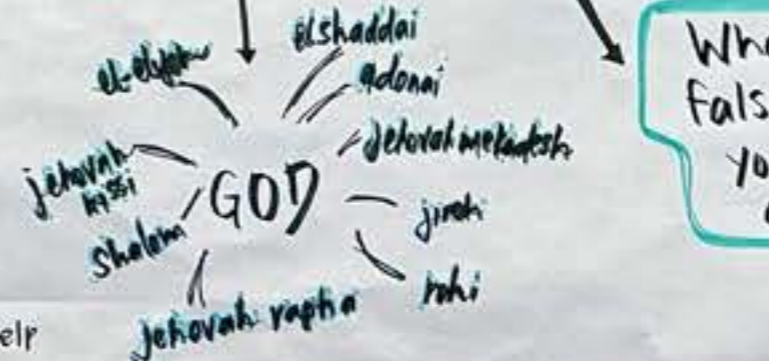 elshaddai
el-elyon
adonai
jehovah mekadesh
jehovah
nissi
GOD
jireh
shalom
rohi
jehovah rapha
elp
Wha
Fals
yo